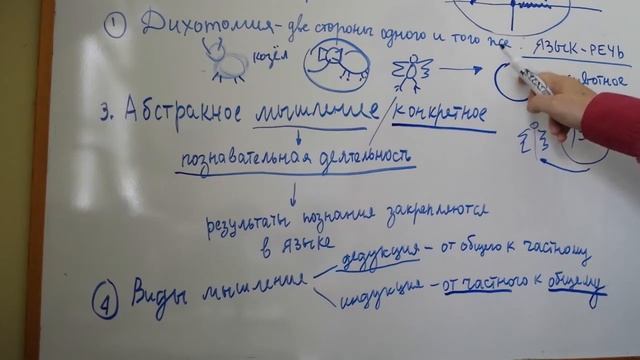 ① Дихотомия - две стороны одного и того же. ЯЗЫК-РЕЧЬ
козёл
3. Абстракное мышление конкретное
познавательная деятельность
результаты познания закрепляются
в языке
④ Виды мышление
дедукция - от общего к частному
индукция - от частного к общему